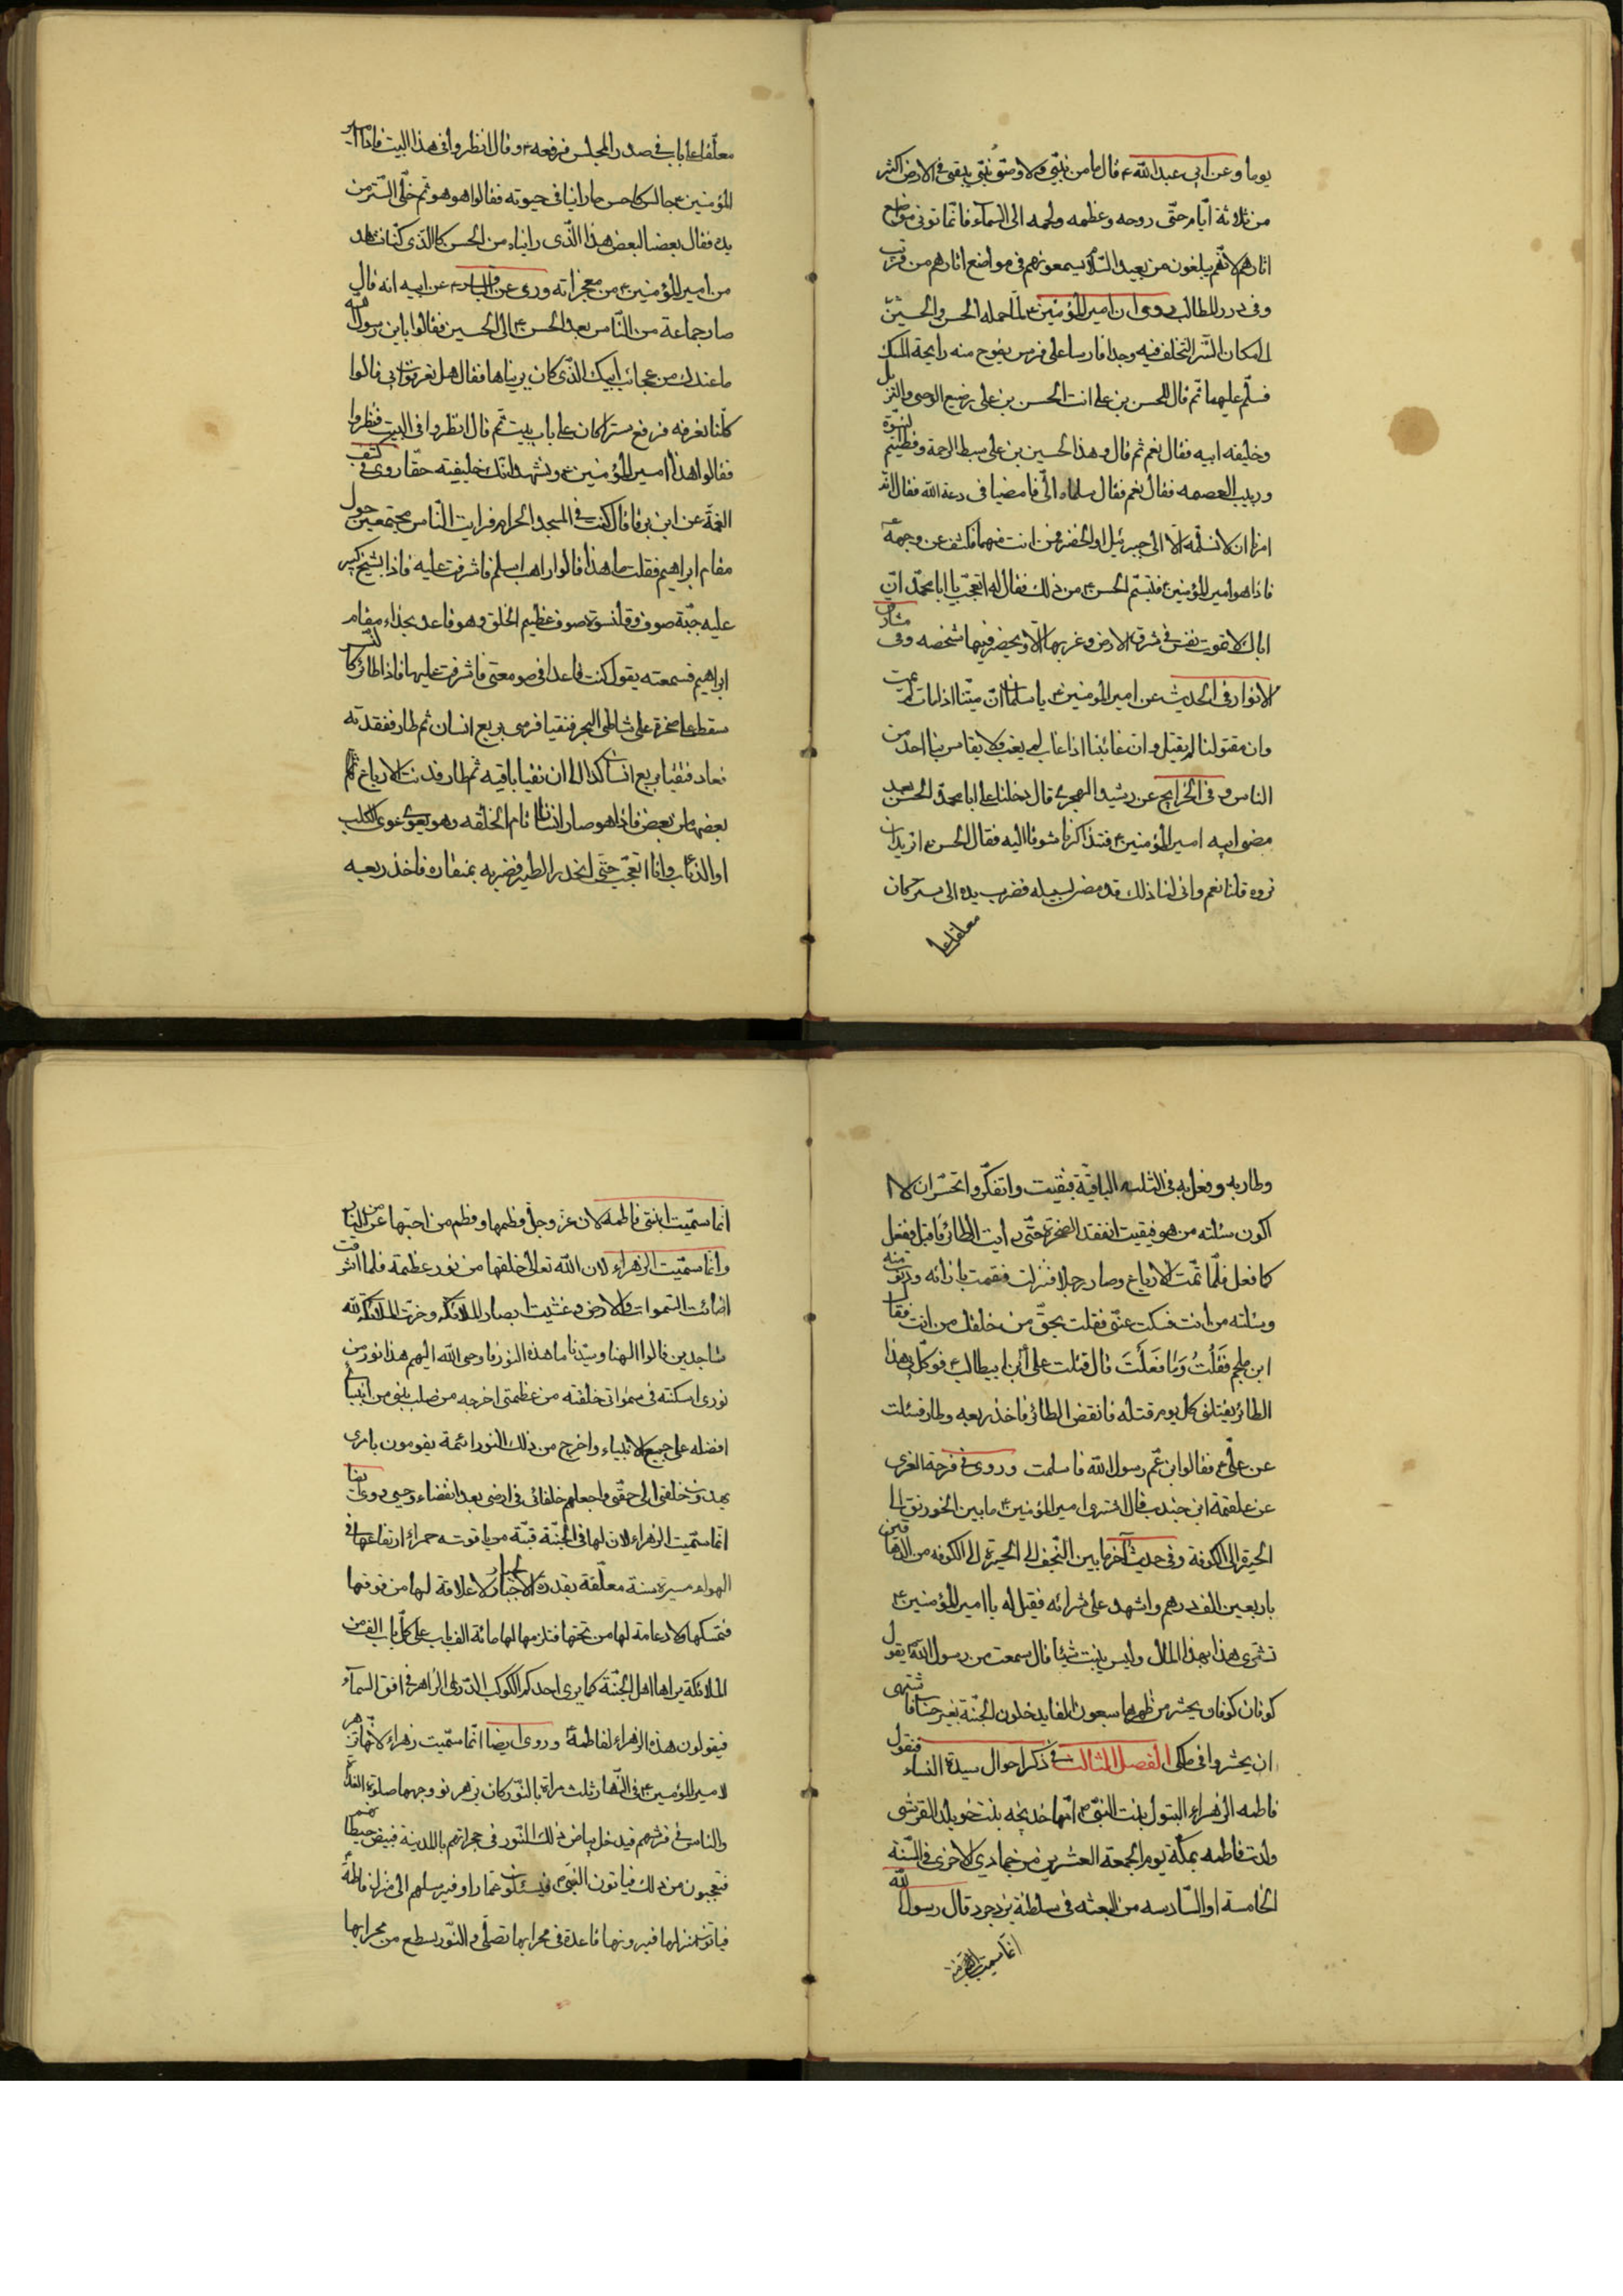 يوما وعن ابي عبد الله ع قال ما من نبيّ ولا وصيّ نبيّ يبقى في الارض اكثر
من ثلاثة ايّام حتّى روحه وعظمه ولحمه الى السماء فانّما توتى مواضع
اثارهم لانّهم يبلغون من بعيد السّلام يسمعونهم في مواضع اثارهم من قريب
وفي درر المطالب روى ان امير المؤمنين ع لمّا حمله الحسن والحسين
لمكان السّر التخلف فيه وجدا فارسا على فرس يفوح منه رايحة المسك
فسلّم عليهما ثمّ قال للحسن بن على انت الحسن بن على رضيع الوحى والتنزيل
وخليفه ابيه فقال نعم ثم قال وهذا الحسين بن على سبط الرحمة وفطيم النبوّة
وربيب العصمه فقال نعم فقال سلماه الىّ فامضيا فى دعة الله فقال انه
امرنا ان لا نسلّمه الّا الى جبرئيل او الخضر فمن انت منهما فكشف عن وجهه
فاذا هو امير المؤمنين ع فتبسّم الحسن ع من ذلك فقال له اتعجّب يا ابا محمّد انّ
اباك لا تموت نفس فى شرق الارض وغربها الّا ويحضر فيها شخصه وفى مشارق
الانوار فى الحديث عن امير المؤمنين ع يا سلمان انّ ميّتنا اذا مات لم يمت
وان مقتولنا لم يقتل وان غائبنا اذا غاب لم يغب ولا يقاس بنا احد من
الناس وفى الخرايج عن رشيد الهجرى قال دخلنا على ابا محمّد الحسن بعد
مضى ابيه امير المؤمنين ع فتذاكرنا شوقنا اليه فقال الحسن ع اتريدان
تروه قلنا نعم وانى لنا ذلك قد مضى لسبيله فضرب يده الى ستر كان
معلقا على
معلّقا على باب فى صدر المجلس فرفعه ع وقال انظروا فى هذا البيت فاذا امير
المؤمنين ع جالس كاحسن ما راينا فى حيوته فقالوا هو هو ثمّ خلّى الستر من
يده فقال بعضا لبعض هذا الّذى رايناه من الحسن كالذى كنّا نشاهد
من امير المؤمنين ع من معجزاته وروى عن الباقر ع عن ابيه انه قال
صار جماعة من النّاس بعد الحسن ع الى الحسين فقالوا يا بن رسول الله
ما عندك من عجائب ابيك الذّى كان يريناها فقال هل تعرفون ابى قالوا
كلّنا نعرفه فرفع سترا كان على باب بيت ثمّ قال انظروا فى البيت فنظروا
فقالوا هذا امير المؤمنين ع ونشهد انّك خليفته حقّا روى فى كشف
الغمّة عن ابن برقا قال كنت فى المسجد الحرام فرايت النّاس مجتمعين حول
مقام ابراهيم فقلت ما هذا قالوا راهب اسلم فاشرفت عليه فاذا بشيخ كبير
عليه جبّة صوف وقلنسوة صوف عظيم الخلق وهو قاعد بحذاء مقام
ابراهيم فسمعته يقول كنت قاعدا فى صومعتى فاشرفت عليها فاذا طائر كالنسر
سقط على صخرة على شاطى البحر فتقيا فرمى بربع انسان ثم طار ففقدته
فعاد فتقيا بربع انسان كذا الى ان تقيا باقيه ثم طار فدنت الارباع
بعضها من بعض فاذا هو صار انسانا تام الخلقه وهو يعوى عوى الكلب
او الذئاب وانا اتعجّب حتّى انحدر الطير فضربه بمنقاره فاخذ ربعه
وطار به وفعل به فى الثلث الباقيّة فبقيت واتفكّر واتحسّر ان لا
اكون سئلته من هو فبقيت اتفقد الصخرة حتّى رايت الطائر قد اقبل ففعل
كما فعل فلّما تمّت الارباع وصار رجلا فنزلت فقمت بازائه ودنوت منه
وسئلته من انت فسكت عنّى فقلت بحقّ من خلقك من انت فقال
ابن ملجم فَقُلْتُ وَمٰا فَعَلْتَ قال قتلت على ابن ابيطالب ع فوكّل بى هذا
الطائر يقتلنى كل يوم قتله فانقض الطائر فاخذ ربعه وطار فسئلت
عن علّى ع فقالوا بن عّم رسول الله فاسلمت وروى فى فرحة الغرى
عن علقمة ابن جندب قال اشترى امير المؤمنين ع ما بين الخورنق الى
الحيرة الى الكوفة وفى حديث آخر ما بين النجف الى الحيرة الى الكوفه من الدهاقين
باربعين الف درهم واشهد على شرائه فقيل له يا امير المؤمنين ع
تشترى هذا بهذا المال وليس ينبت شيئا قال سمعت من رسول الله يقول
كوفان كوفان يحشر من ظهرها سبعون الفا يدخلون الجنّة بغير حساب
ان يحشروا فى ملكى الفصل الثالث فى ذكر احوال سيدة النساء فنقول
فاطمه الزهراء البتول بنت النبىّ ص امّها خديجه بنت خويلد القرشى
ولدت فاطمه بمكّة يوم الجمعة العشرين من جمادي الاخرى فى السّنة
الخامسة او السّادسه من البعثه فى سلطنة يزدجرد قال رسول الله
انّما سميت
انّما سمّيت ابنتى فاطمه لان عزّ وجلّ فطمها وفطم من احبّها عن النار
وانما سمّيت الزهراء لان الله تعالى خلقها من نور عظمة فلما اشرقت
اضائت السّموات والارض وغشيت ابصار الملائكه وخرّت الملائكة لله
ساجدين قالوا الهنا وسيّدنا ما هذه النور فاوحى الله اليهم هذا نور من
نورى اسكنته فى سمٰواتى خلقته من عظمتى اخرجه من صلب نبى من انبيائى
افضله على جميع الانبياء واخرج من ذلك النور ائمة يقومون بامرى
يهدون خلقى الى حقّى واجعلهم خلفائى فى ارضى بعد انقضاء وحيى وروى ايضا
انّما سمّيت الزهراء لان لها فى الجنّة قبّة من ياقوته حمراء ارتفاعها فى
الهواء مسيرة سنة معلّقة بقدرة الجبار ولا علاقة لها من فوقها
فتمسكها ولا دعامة لها من تحتها فتلزمها لها مائة الف باب على كلّ باب الف من
الملائكة يراها اهل الجنّة كما يرى احدكم الكوكب الدّرى الزاهر فى افق السماء
فيقولون هذه الزهراء لفاطمة وروى ايضا انّما سمّيت زهراء لانّها تزهر
لامير المؤمنين ع فى النّهار ثلث مراة بالنّور كان يزهر نور وجهها صلوة الغداة
والناس فى فرشهم فيدخل بياض ذلك النّور فى حجراتهم بالمدينة فبيض حيطانهم
فتعجبون من ذلك فياتون النبىّ ص فيسئلون عما راوا فيرسلهم الى منزل فاطمة
فياتون منزلها فيرونها قاعدة فى محرابها تصلّى والنّور يسطع من محرابها